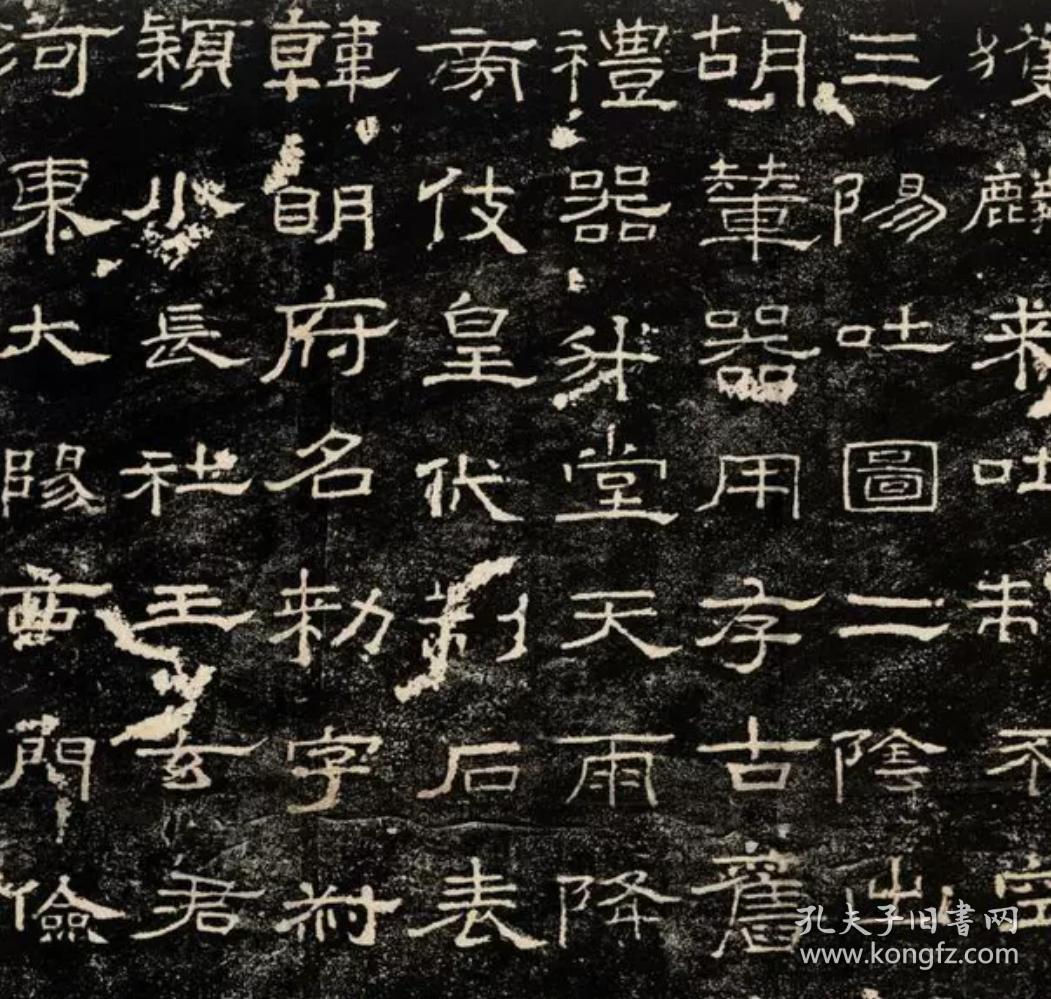 獲麟来吐制不空
三陽吐圖二陰出
胡輦器用存古舊
禮器升堂天雨降
旁伎皇代刊石表
韓眀府名勑字叔
潁川長社王玄君
河東大陽西門儉
孔夫子旧書网
www.kongfz.com